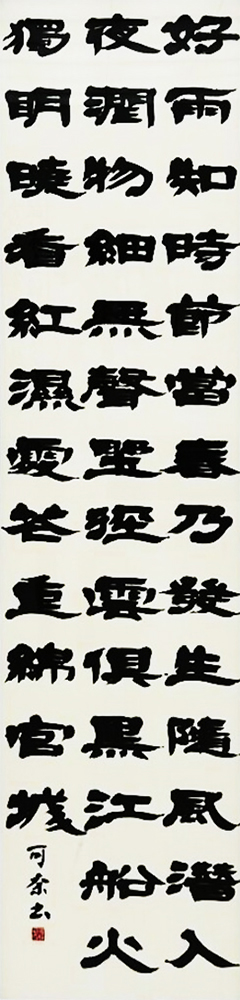 好雨知時節當春乃發生隨風潛入
夜潤物細無聲野徑雲俱黑江船火
獨明曉看紅濕處花重錦官城
可奈书